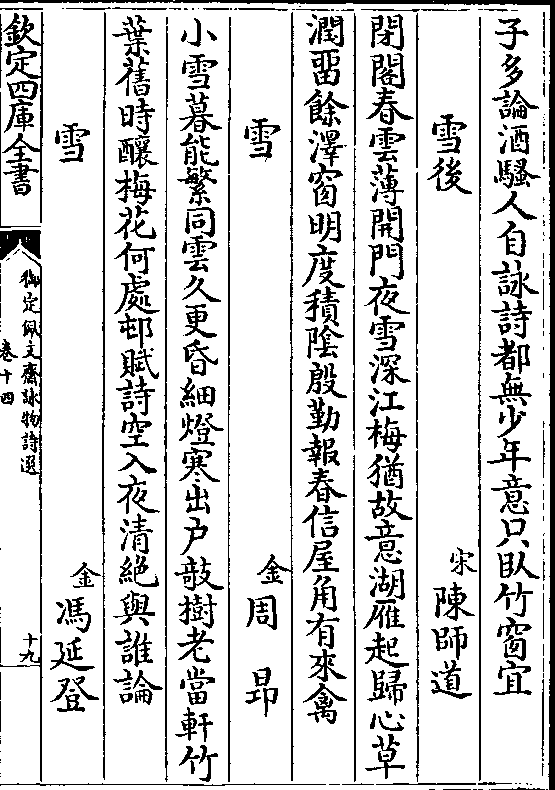 子多論酒騷人自詠詩都無少年意只臥竹窗宜
雪後
宋陳師道
閉閣春雲薄開門夜雪深江梅猶故意湖雁起歸心草
潤畱餘澤窗明度積陰殷勤報春信屋角有來禽
雪
金周昂
小雪暮能繁同雲久更昏細燈寒出户敧樹老當軒竹
葉舊時釀梅花何處邨賦詩空入夜清絶與誰論
雪
金馮延登
欽定四庫全書
御定佩文齋詠物詩選
卷十四
十九